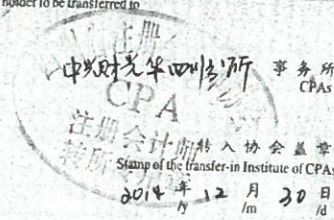 holder to be transferred to
中兴财光华四川分所 事务所
CPAs
CPA
注册会计师
转入协会盖章
Stamp of the transfer-in Institute of CPAs
2014年12月30日
/y /m /d